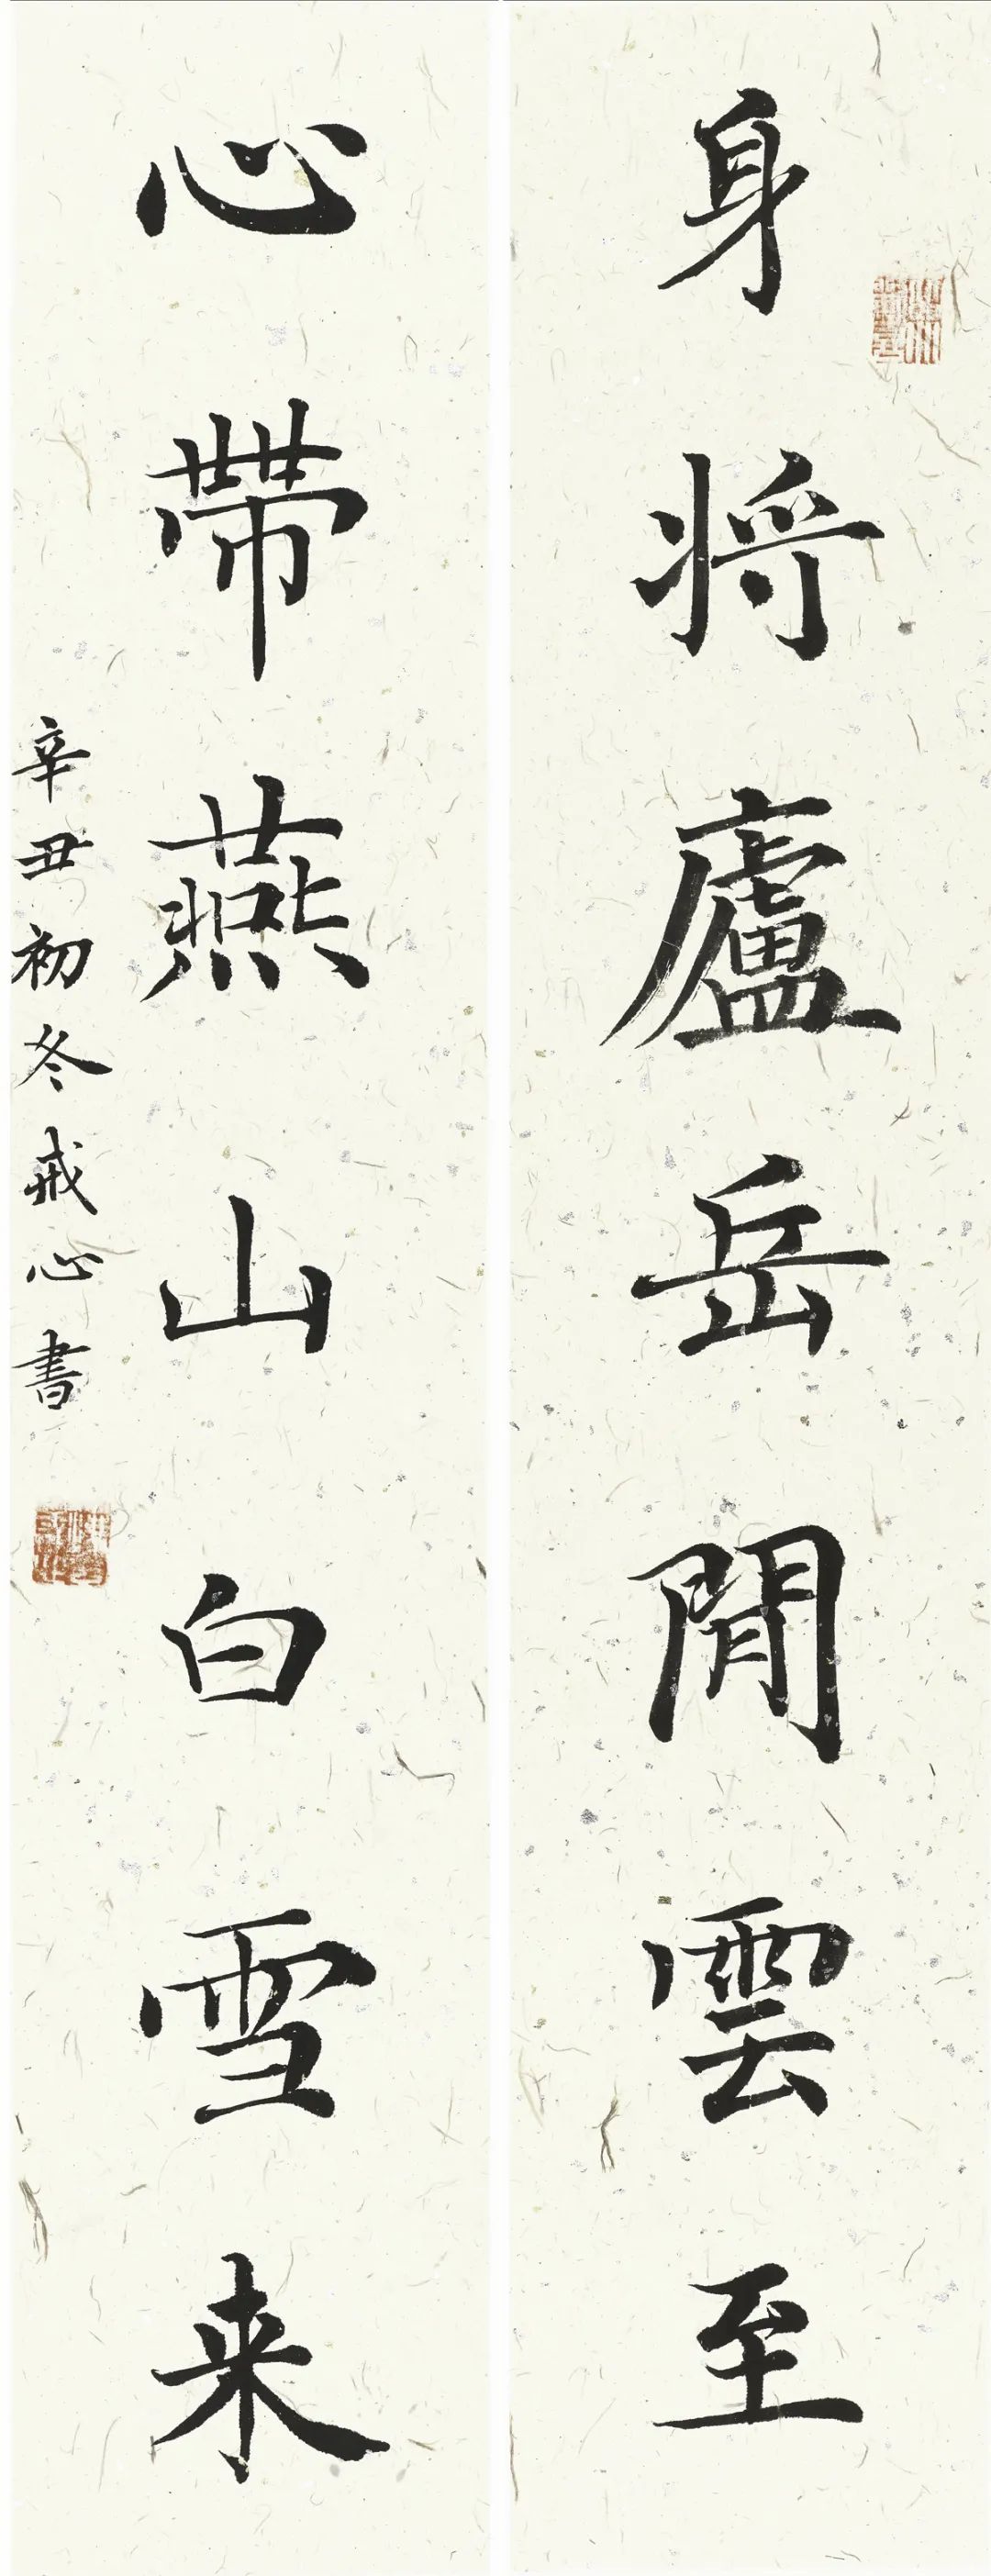 身将廬岳閒雲至
心帶燕山白雪来
辛丑初冬戒心書